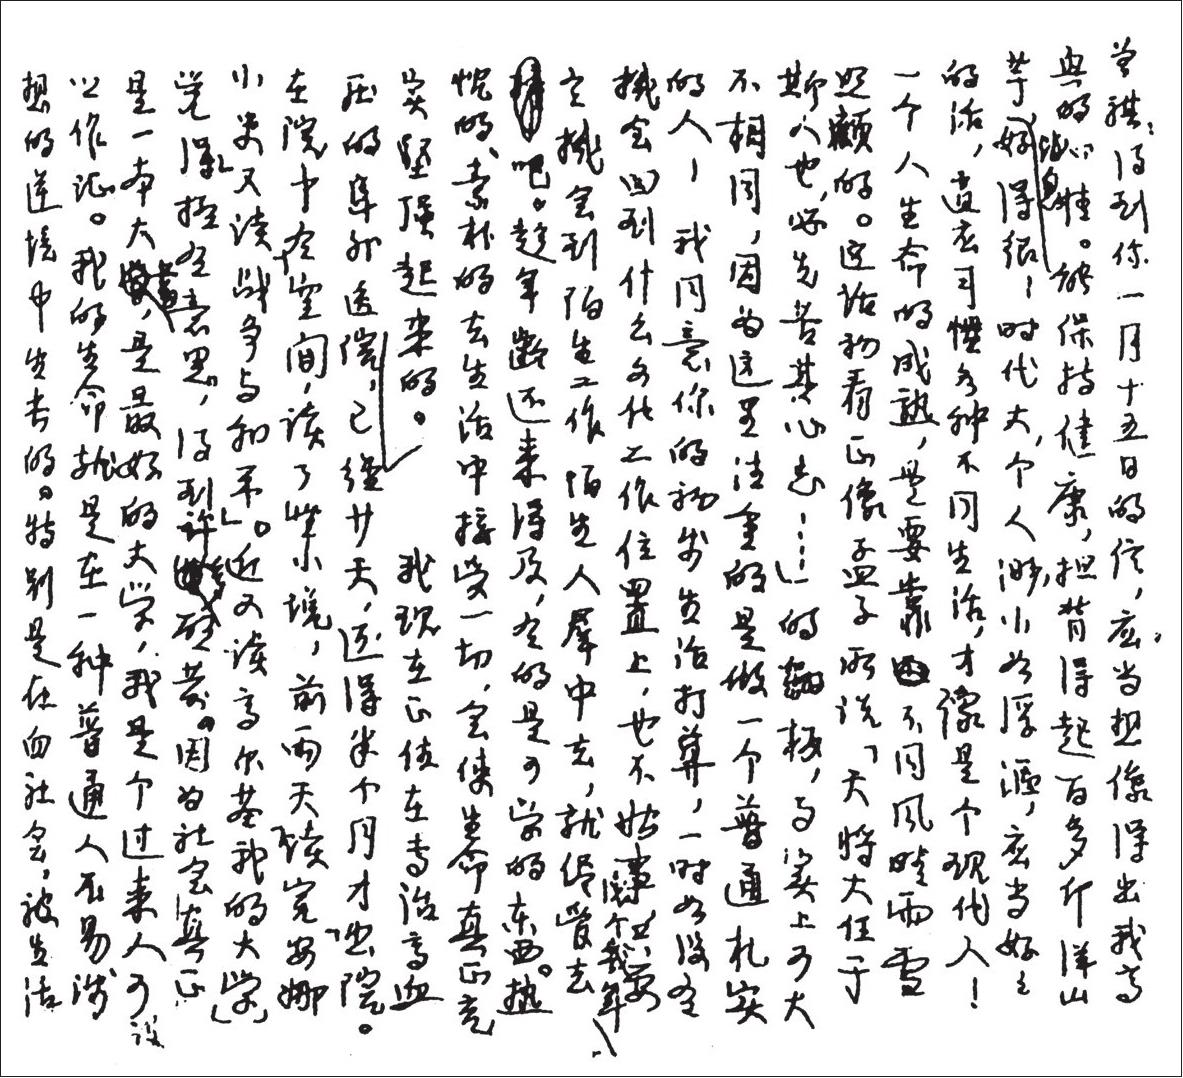 曾祺：得到你一月十五日的信，应当想像得出我高
兴的心情。能保持健康，担背得起百多斤洋山
芋，好得很！时代大，个人渺小如浮沤，应当好好
的活，适应习惯各种不同生活，才像是个现代人！
一个人生命的成熟，是要靠不同风晴雨雪
照顾的。这话初看正像孟子所说「天将大任于
斯人也，必先苦其心志……」的翻板，与实上可大
不相同，因为这里注重的是做一个普通札实
的人，我同意你的初步生活打算，一时如没有
机会回到什么文化工作位置上，也不妨事，只要
有机会到陌生工作陌生人群中去，就尽管去
吧。趁年龄还来得及，有的是可学的东西。热
忱的、素朴的去生活中接受一切，会使生命真正充
实坚强起来的。　　我现在正住在専治高血
压的阜外医院，已经廿天，还得半个月才出院。
在院中有空间，读了些小说，前两天读完「安娜
小史」又读「战争与和平」。近又读高尔基「我的大学」，
觉得极有意思，得到许多启发。因为社会真正
是一本大书，是最好的大学，我是个过来人可
以作证。我的生命就是在一种普通人不易设
想的逆境中生长的。特别是在旧社会，被生活